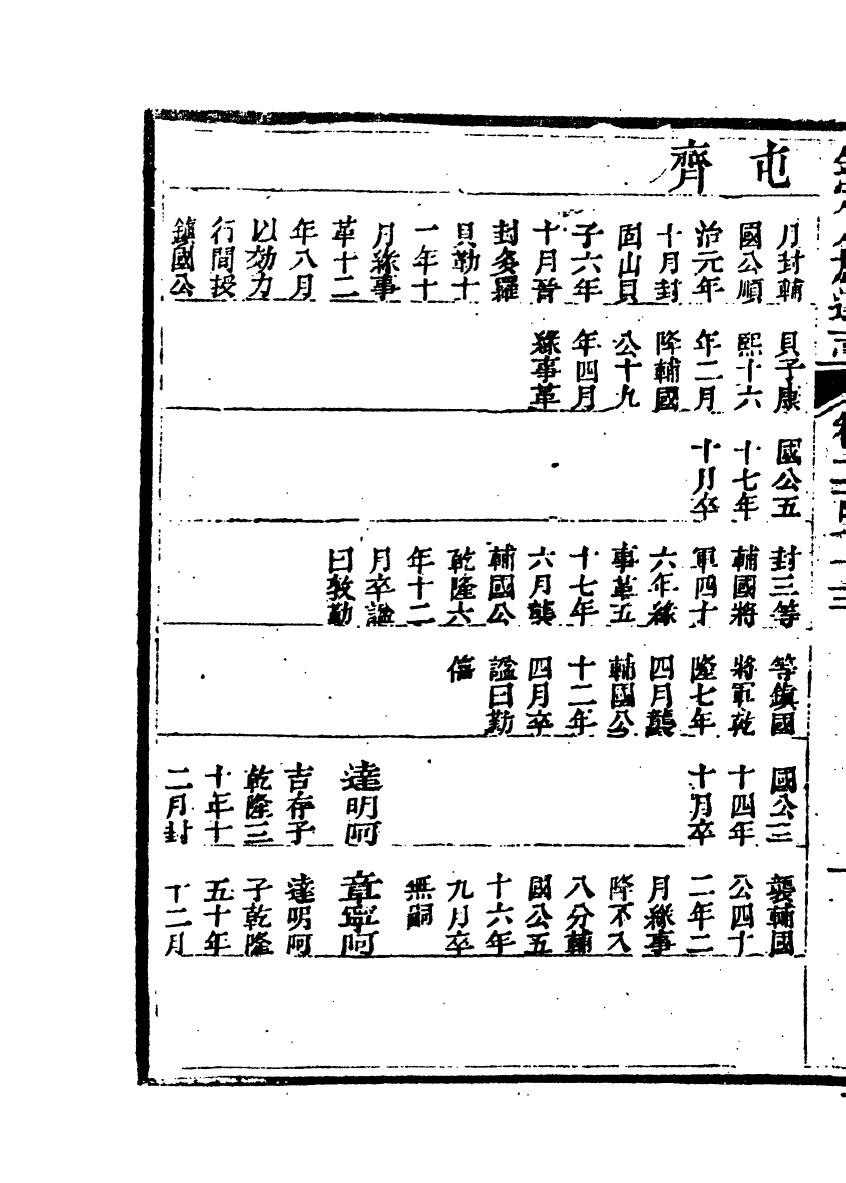 屯齊
月封輔
國公順
治元年
十月封
固山貝
子六年
十月晉
封多羅
貝勒十
一年十
月緣事
革十二
年八月
以効力
行間授
鎮國公
貝子康
熙十六
年二月
降輔國
公十九
年四月
緣事革
國公五
十七年
十月卒
封三等
輔國將
軍四十
六年緣
事革五
十七年
六月襲
輔國公
乾隆六
年十二
月卒諡
曰敦勤
等鎮國
將軍乾
隆七年
四月襲
輔國公
十二年
四月卒
諡曰勤
僖
國公三
十四年
十月卒
達明阿
吉存子
乾隆三
十年十
二月封
襲輔國
公四十
二年二
月緣事
降不入
八分輔
國公五
十六年
九月卒
無嗣
章寧阿
達明阿
子乾隆
五十年
十二月